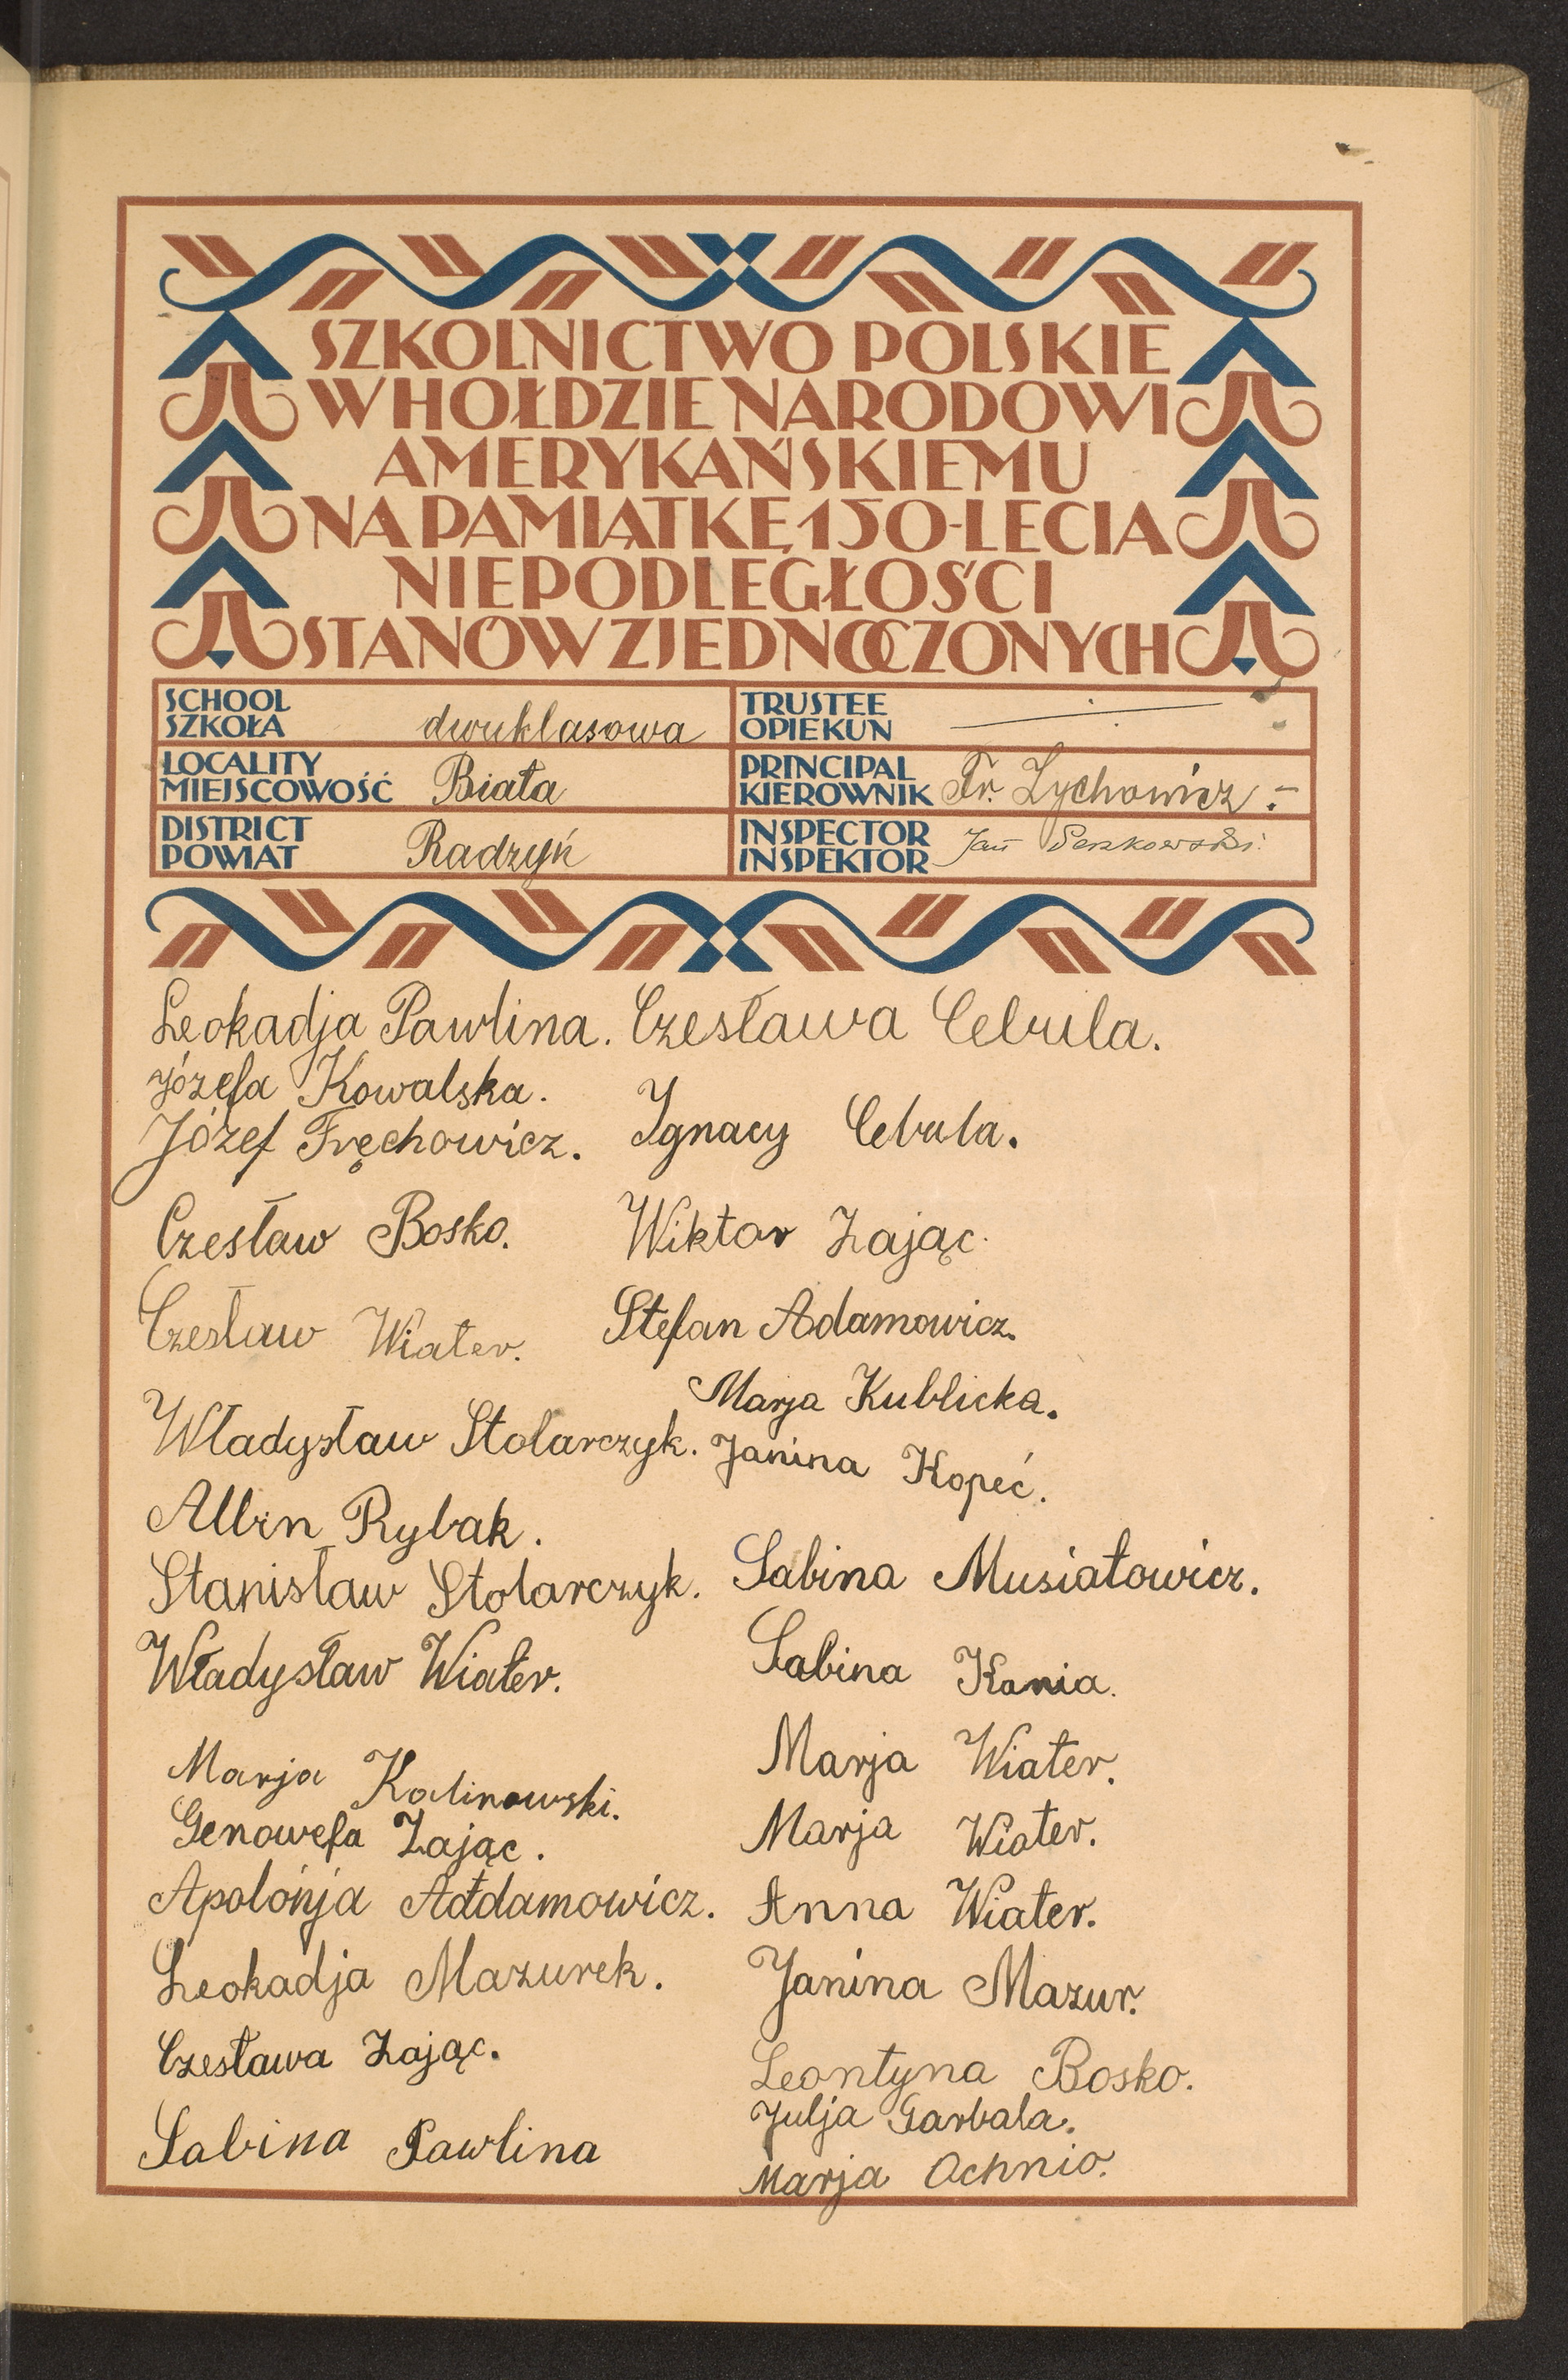 SZKOLNICTWO POLSKIE
W HOŁDZIE NARODOWI
AMERYKAŃSKIEMU
NA PAMIĄTKĘ 150-LECIA
NIEPODLEGŁOŚCI
STANÓW ZJEDNOCZONYCH
SCHOOL
SZKOŁA dwuklasowa
TRUSTEE
OPIEKUN
LOCALITY
MIEJSCOWOŚĆ Biała
PRINCIPAL
KIEROWNIK Fr. Zychowicz.-
DISTRICT
POWIAT Radzyń
INSPECTOR
INSPEKTOR Jan
Leokadja Pawlina.
Józefa Kowalska.
Józef Fręchowicz.
Czesław Bosko.
Czesław Wiater.
Władysław Stolarczyk.
Albin Rybak.
Stanisław Stolarczyk.
Władysław Wiater.
Marja Kalinowski.
Genowefa Zając.
Apolónja Addamowicz.
Leokadja Mazurek.
Czesława Zając.
Sabina Pawlina
Czesława Cebula.
Ignacy Cebula.
Wiktor Zając.
Stefan Adamowicz.
Marja Kublicka.
Janina Kopeć.
Sabina Musiatowicz.
Sabina Kania.
Marja Wiater.
Marja Wiater.
Anna Wiater.
Janina Mazur.
Leontyna Bosko.
Julja Garbala.
Marja Ochnio.